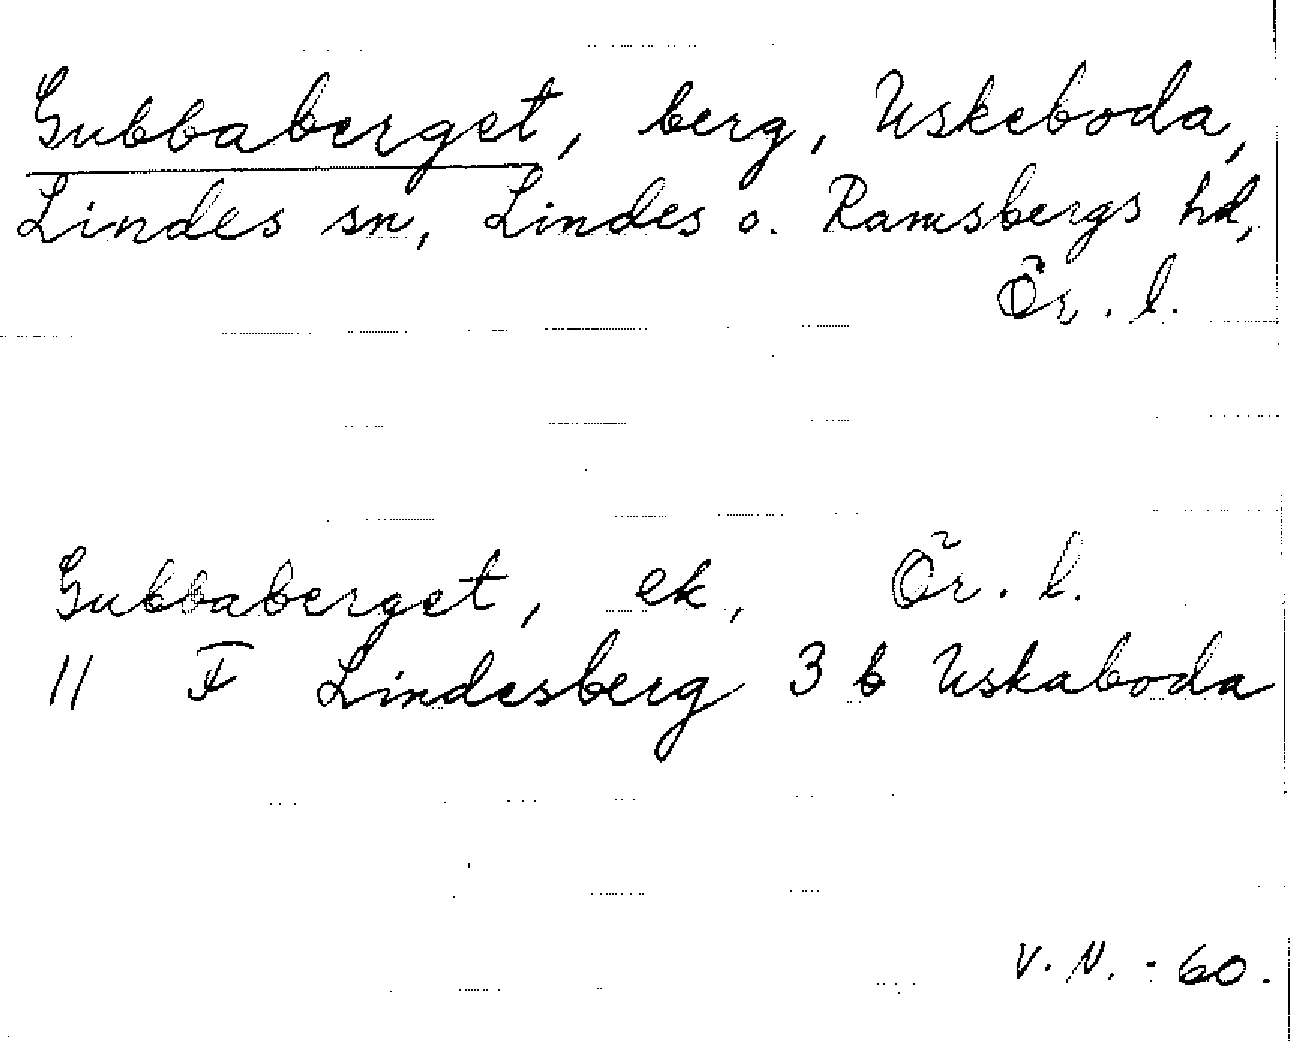 Gubbaberget, berg, Uskeboda,
Lindes sn, Lindes o. Ramsbergs hd,
Ör. l.
Gubbaberget, ek, Ör. l.
11 F Lindesberg 3 b Uskaboda
V. N. - 60.